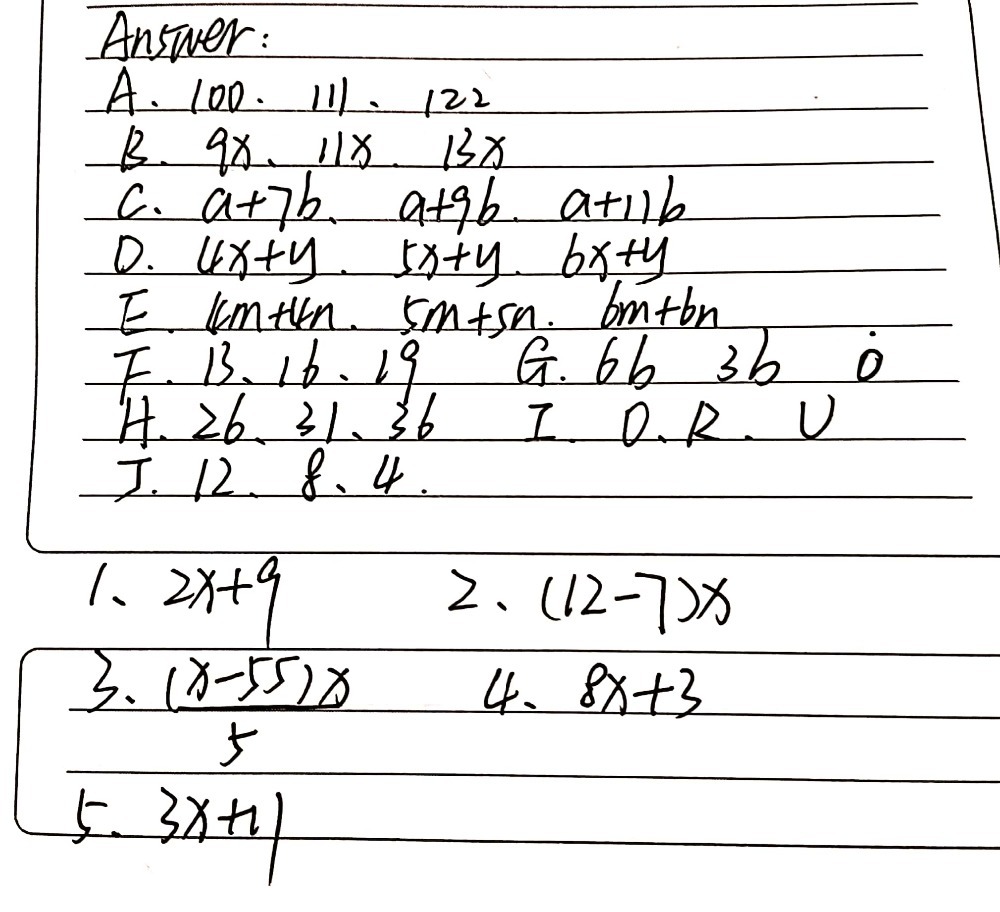 Answer:
A. 100. 111、122
B. 9x、11x. 13x
C. a+7b、a+9b. a+11b
D. 4x+y. 5x+y. 6x+y
E. 4m+4n. 5m+5n. 6m+6n
F. 13、16、19 G. 6b 3b 0
H. 26、31、36 I. O. R. U
J. 12、8、4.
1、2x+9 2、(12-7)x
3、(x-55)x/5 4、8x+3
5. 3x+11